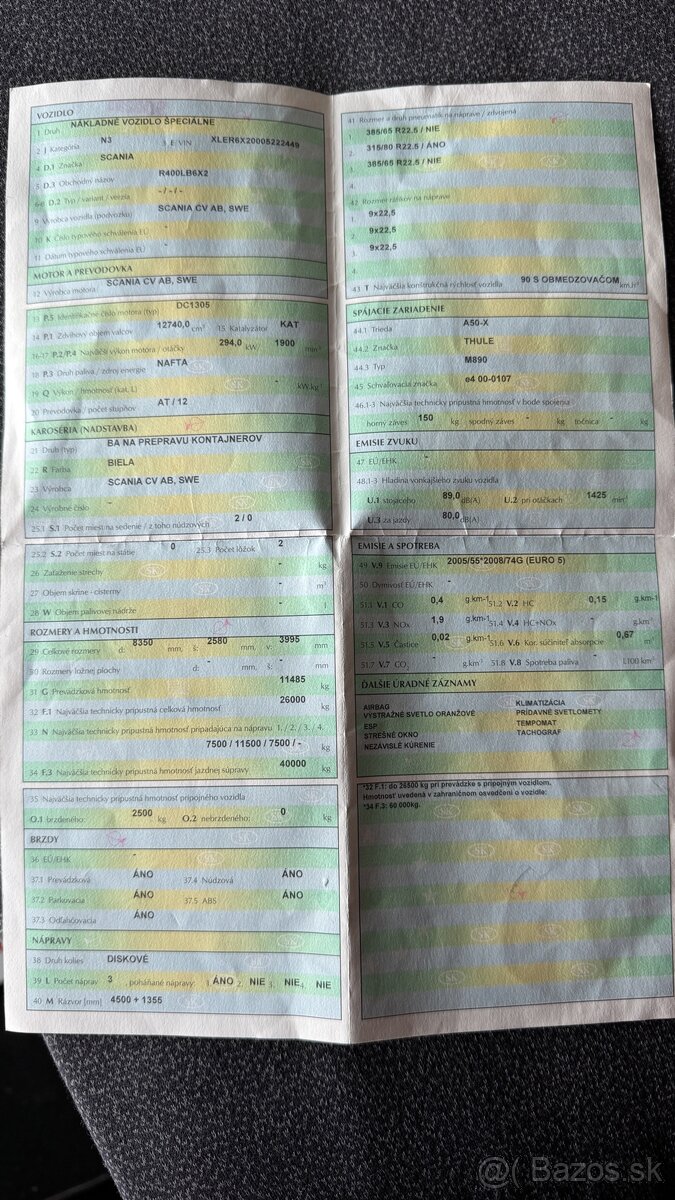 VOZIDLO
1 Druh NÁKLADNÉ VOZIDLO ŠPECIÁLNE
2 J Kategória N3 3 E VIN XLER6X20005222449
4 D.1 Značka SCANIA
5 D.3 Obchodný názov R400LB6X2
6-8 D.2 Typ / variant / verzia - / - / -
9 Výrobca vozidla (podvozku) SCANIA CV AB, SWE
10 K Číslo typového schválenia EÚ -
11 Dátum typového schválenia EÚ -
MOTOR A PREVODOVKA
12 Výrobca motora SCANIA CV AB, SWE
13 P.5 Identifikačné číslo motora (typ) DC1305
14 P.1 Zdvihový objem valcov 12740,0 cm³ 15 Katalyzátor KAT
16-17 P.2/P.4 Najväčší výkon motora / otáčky 294,0 kW 1900 min⁻¹
18 P.3 Druh paliva / zdroj energie NAFTA
19 Q Výkon / hmotnosť (kat. L) - kW.kg⁻¹
20 Prevodovka / počet stupňov AT / 12
KAROSÉRIA (NADSTAVBA)
21 Druh (typ) BA NA PREPRAVU KONTAJNEROV
22 R Farba BIELA
23 Výrobca SCANIA CV AB, SWE
24 Výrobné číslo -
25.1 S.1 Počet miest na sedenie / z toho núdzových 2 / 0
25.2 S.2 Počet miest na státie 0 25.3 Počet lôžok 2
26 Zaťaženie strechy - kg
27 Objem skrine - cisterny - m³
28 W Objem palivovej nádrže - l
ROZMERY A HMOTNOSTI
29 Celkové rozmery d: 8350 mm, š: 2580 mm, v: 3995 mm
30 Rozmery ložnej plochy d: - mm, š: - mm
31 G Prevádzková hmotnosť 11485 kg
32 F.1 Najväčšia technicky prípustná celková hmotnosť 26000 kg
33 N Najväčšia technicky prípustná hmotnosť pripadajúca na nápravu 1. / 2. / 3. / 4.
7500 / 11500 / 7500 / - kg
34 F.3 Najväčšia technicky prípustná hmotnosť jazdnej súpravy 40000 kg
35 Najväčšia technicky prípustná hmotnosť prípojného vozidla
O.1 brzdeného: 2500 kg O.2 nebrzdeného: 0 kg
BRZDY
36 EÚ/EHK -
37.1 Prevádzková ÁNO 37.4 Núdzová ÁNO
37.2 Parkovacia ÁNO 37.5 ABS ÁNO
37.3 Odľahčovacia ÁNO
NÁPRAVY
38 Druh kolies DISKOVÉ
39 L Počet náprav 3 , poháňané nápravy: 1. ÁNO 2. NIE 3. NIE 4. NIE
40 M Rázvor [mm] 4500 + 1355
41 Rozmer a druh pneumatík na náprave / zdvojená
1. 385/65 R22.5 / NIE
2. 315/80 R22.5 / ÁNO
3. 385/65 R22.5 / NIE
4.
42 Rozmer ráfikov na náprave
1. 9x22,5
2. 9x22,5
3. 9x22,5
4.
43 T Najväčšia konštrukčná rýchlosť vozidla 90 S OBMEDZOVAČOM km.h⁻¹
SPÁJACIE ZARIADENIE
44.1 Trieda A50-X
44.2 Značka THULE
44.3 Typ M890
45 Schvaľovacia značka e4 00-0107
46.1-3 Najväčšia technicky prípustná hmotnosť v bode spojenia
horný záves 150 kg spodný záves - kg točnica - kg
EMISIE ZVUKU
47 EÚ/EHK -
48.1-3 Hladina vonkajšieho zvuku vozidla
U.1 stojaceho 89,0 dB(A) U.2 pri otáčkach 1425 min⁻¹
U.3 za jazdy 80,0 dB(A)
EMISIE A SPOTREBA
49 V.9 Emisie EÚ/EHK 2005/55*2008/74G (EURO 5)
50 Dymivosť EÚ/EHK -
51.1 V.1 CO 0,4 g.km-1 51.2 V.2 HC 0,15 g.km-1
51.3 V.3 NOx 1,9 g.km-1 51.4 V.4 HC+NOx - g.km⁻¹
51.5 V.5 Častice 0,02 g.km-1 51.6 V.6 Kor. súčiniteľ absorpcie 0,67 m⁻¹
51.7 V.7 CO₂ - g.km⁻¹ 51.8 V.8 Spotreba paliva - l.100 km⁻¹
ĎALŠIE ÚRADNÉ ZÁZNAMY
AIRBAG KLIMATIZÁCIA
VÝSTRAŽNÉ SVETLO ORANŽOVÉ PRÍDAVNÉ SVETLOMETY
ESP TEMPOMAT
STREŠNÉ OKNO TACHOGRAF
NEZÁVISLÉ KÚRENIE
*32 F.1: do 26500 kg pri prevádzke s prípojným vozidlom.
Hmotnosť uvedená v zahraničnom osvedčení o vozidle:
*34 F.3: 60 000kg.
@( Bazos.sk